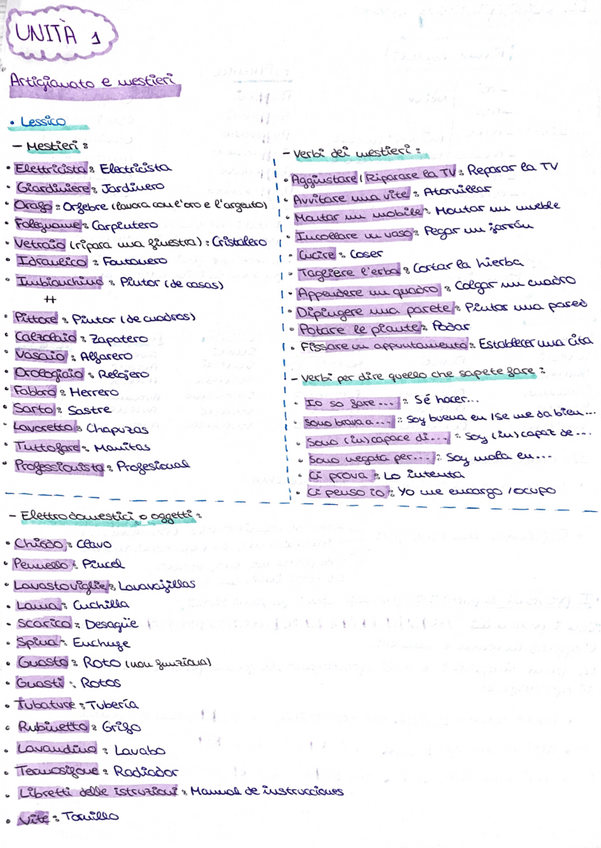 UNITÀ 1
Artigianato e mestieri
• Lessico
- Mestieri:
• Elettricista: Electricista
• Giardiniere: Jardinero
• Orafo: Orfebre (lavora con l'oro e l'argento)
• Falegname: Carpintero
• Vetraio (ripara una finestra): Cristalero
• Idraulico: Fontanero
• Imbianchino: Pintor (de casas)
++
• Pittore: Pintor (de cuadros)
• Calzolaio: Zapatero
• Vasaio: Alfarero
• Orologiaio: Relojero
• Fabbro: Herrero
• Sarto: Sastre
• Lavoretto: Chapuzas
• Tuttofare: Manitas
• Professionista: Profesional
- Verbi dei mestieri:
• Aggiustare / Riparare la TV: Reparar la TV
• Avvitare una vite: Atornillar
• Montar un mobile: Montar un mueble
• Incollare un vaso: Pegar un jarrón
• Cucire: Coser
• Tagliere l'erba: Cortar la hierba
• Appendere un quadro: Colgar un cuadro
• Dipingere una parete: Pintar una pared
• Potare le piante: Podar
• Fissare un appuntamento: Establecer una cita
- Verbi per dire quello che sapete fare:
• Io so fare...: Sé hacer...
• Sono brava a...: Soy buena en / Se me da bien...
• Sono (in)capace di...: Soy (in)capaz de...
• Sono negata per...: Soy mala en...
• Ci prova: Lo intenta
• Ci penso io: Yo me encargo / ocupo
- Elettrodomestici o oggetti:
• Chiodo: Clavo
• Pennello: Pincel
• Lavastoviglie: Lavavajillas
• Lama: Cuchilla
• Scarico: Desagüe
• Spina: Enchufe
• Guasto: Roto (non funziona)
• Guasti: Rotos
• Tubature: Tubería
• Rubinetto: Grifo
• Lavandino: Lavabo
• Termosifone: Radiador
• Libretti delle istruzioni: Manual de instrucciones
• Vite: Tornillo